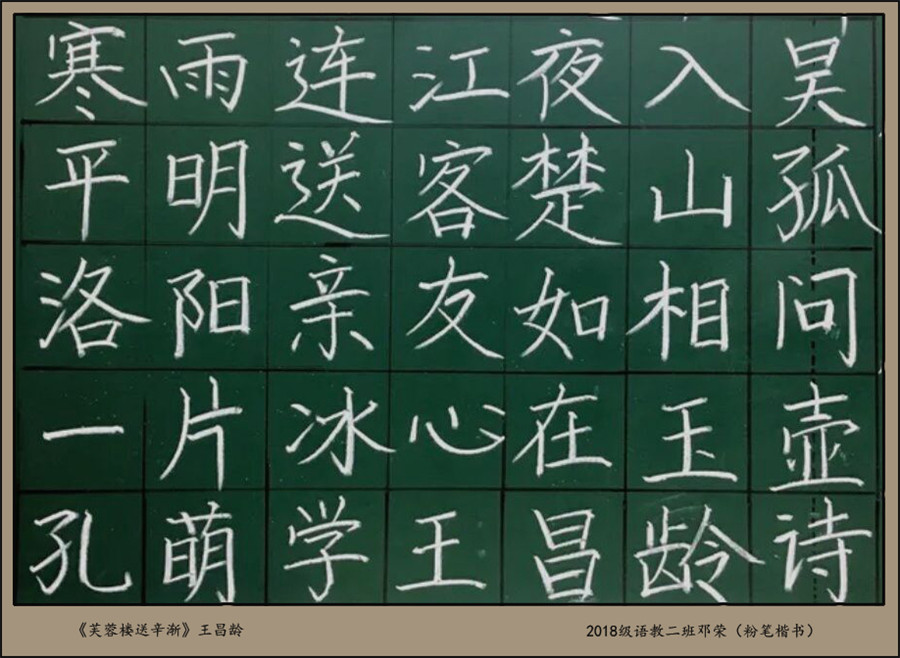 寒雨连江夜入昊
平明送客楚山孤
洛阳亲友如相问
一片冰心在玉壶
孔萌学王昌龄诗
《芙蓉楼送辛渐》王昌龄
2018级语教二班邓荣（粉笔楷书）